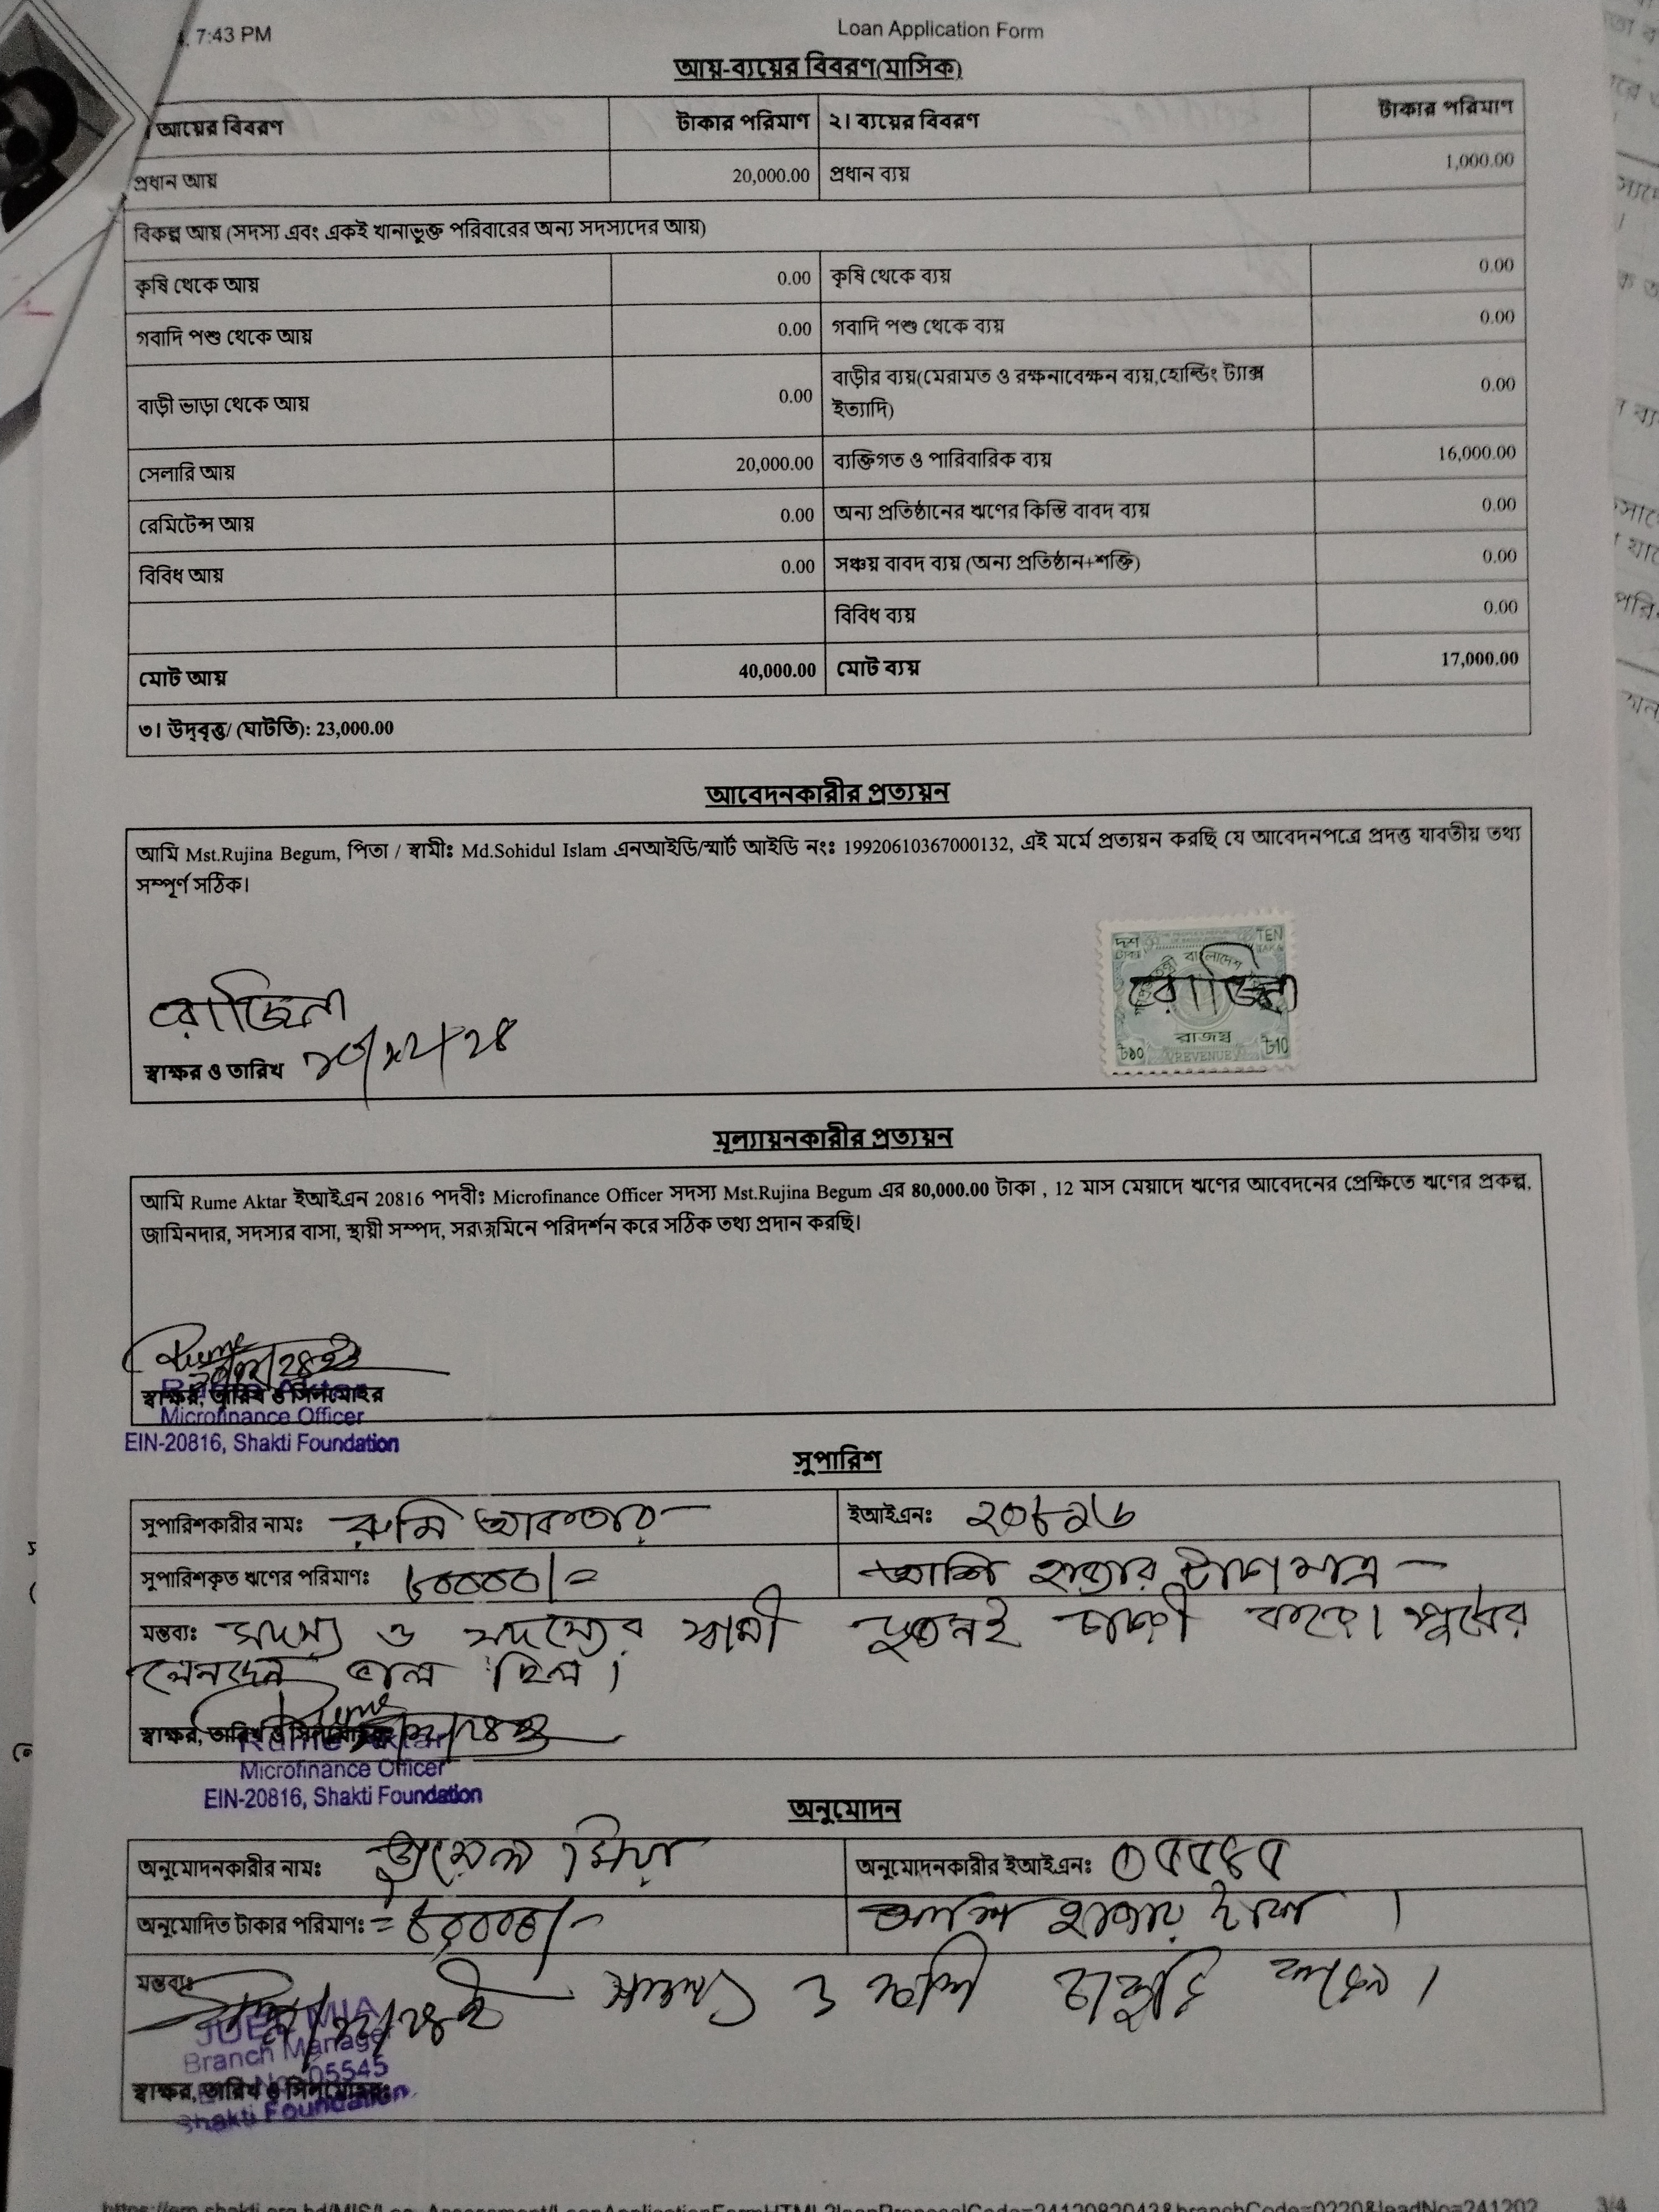 7:43 PM
Loan Application Form
আয়-ব্যয়ের বিবরণ(মাসিক)
আয়ের বিবরণ টাকার পরিমাণ ২। ব্যয়ের বিবরণ টাকার পরিমাণ
প্রধান আয় 20,000.00 প্রধান ব্যয় 1,000.00
বিকল্প আয় (সদস্য এবং একই খানাভুক্ত পরিবারের অন্য সদস্যদের আয়)
কৃষি থেকে আয় 0.00 কৃষি থেকে ব্যয় 0.00
গবাদি পশু থেকে আয় 0.00 গবাদি পশু থেকে ব্যয় 0.00
বাড়ী ভাড়া থেকে আয় 0.00 বাড়ীর ব্যয়(মেরামত ও রক্ষনাবেক্ষন ব্যয়,হোল্ডিং ট্যাক্স 0.00
ইত্যাদি)
সেলারি আয় 20,000.00 ব্যক্তিগত ও পারিবারিক ব্যয় 16,000.00
রেমিটেন্স আয় 0.00 অন্য প্রতিষ্ঠানের ঋণের কিস্তি বাবদ ব্যয় 0.00
বিবিধ আয় 0.00 সঞ্চয় বাবদ ব্যয় (অন্য প্রতিষ্ঠান+শক্তি) 0.00
বিবিধ ব্যয় 0.00
মোট আয় 40,000.00 মোট ব্যয় 17,000.00
৩। উদ্বৃত্ত/ (ঘাটতি): 23,000.00
আবেদনকারীর প্রত্যয়ন
আমি Mst.Rujina Begum, পিতা / স্বামীঃ Md.Sohidul Islam এনআইডি/স্মার্ট আইডি নংঃ 19920610367000132, এই মর্মে প্রত্যয়ন করছি যে আবেদনপত্রে প্রদত্ত যাবতীয় তথ্য
সম্পূর্ণ সঠিক।
দশ টাকা TEN TAKA
বাংলাদেশ
রোজিনা রোজিনা
রাজস্ব
৳১০ REVENUE ৳10
স্বাক্ষর ও তারিখ
মূল্যায়নকারীর প্রত্যয়ন
আমি Rume Aktar ইআইএন 20816 পদবীঃ Microfinance Officer সদস্য Mst.Rujina Begum এর 80,000.00 টাকা , 12 মাস মেয়াদে ঋণের আবেদনের প্রেক্ষিতে ঋণের প্রকল্প,
জামিনদার, সদস্যর বাসা, স্থায়ী সম্পদ, সরজমিনে পরিদর্শন করে সঠিক তথ্য প্রদান করছি।
Rume
স্বাক্ষর, তারিখ ও সিলমোহর
Rume Aktar
Microfinance Officer
EIN-20816, Shakti Foundation
সুপারিশ
সুপারিশকারীর নামঃ রুমি আকতার ইআইএনঃ ২০৮১৬
সুপারিশকৃত ঋণের পরিমাণঃ ৮০০০০/= আশি হাজার টাকা মাত্র
মন্তব্যঃ সদস্য ও সদস্যের স্বামী দুজনই চাকরী করে। পূর্বের
লেনদেন ভাল ছিল।
Rume
স্বাক্ষর, তারিখ ও সিলমোহরঃ
Rume Aktar
Microfinance Officer
EIN-20816, Shakti Foundation
অনুমোদন
অনুমোদনকারীর নামঃ জুয়েল মিয়া অনুমোদনকারীর ইআইএনঃ ০৫৫৪৫
অনুমোদিত টাকার পরিমাণঃ = ৮০,০০০/- আশি হাজার টাকা ।
মন্তব্যঃ সদস্য ও স্বামী চাকুরি করেন ।
JUEL MIA
Branch Manager
05545
স্বাক্ষর, তারিখ ও সিলমোহরঃ
Shakti Foundation
3/4